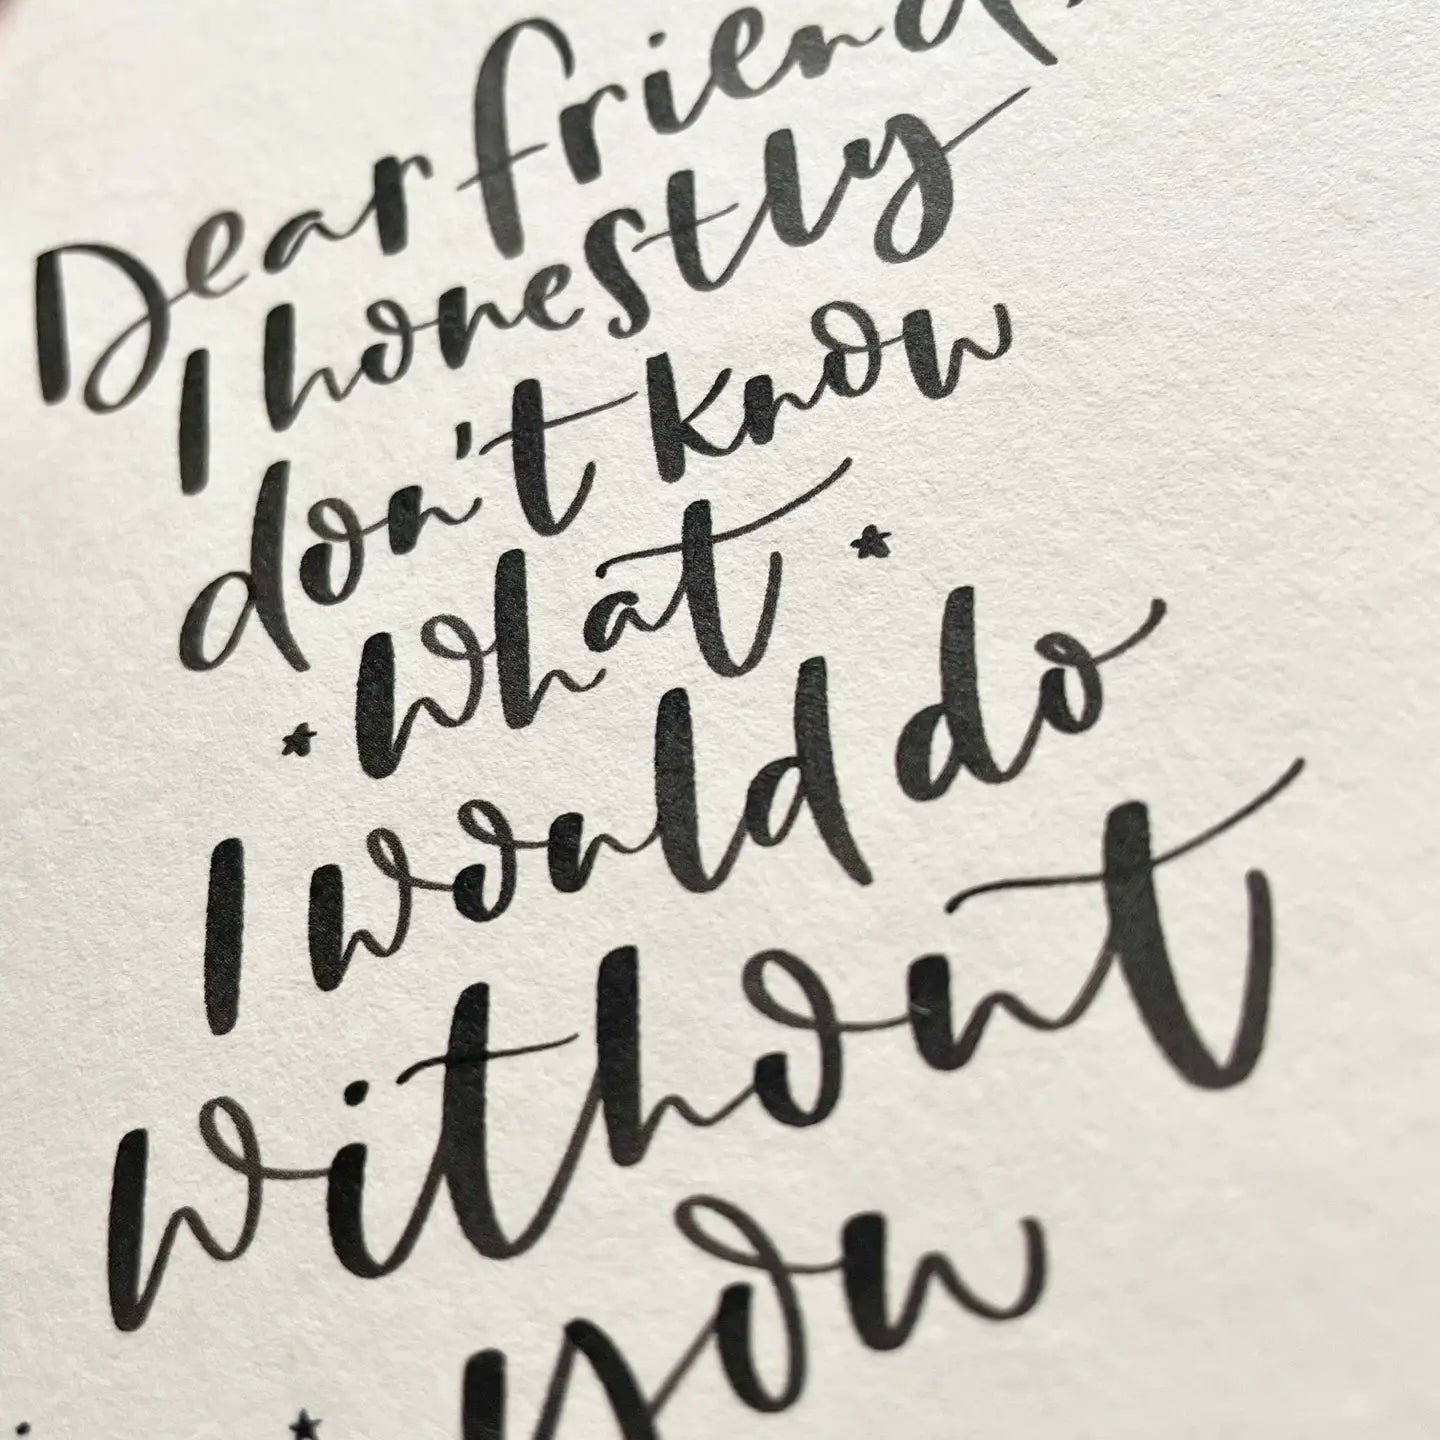 Dear friend,
I honestly
don't know
what
I would do
without
you